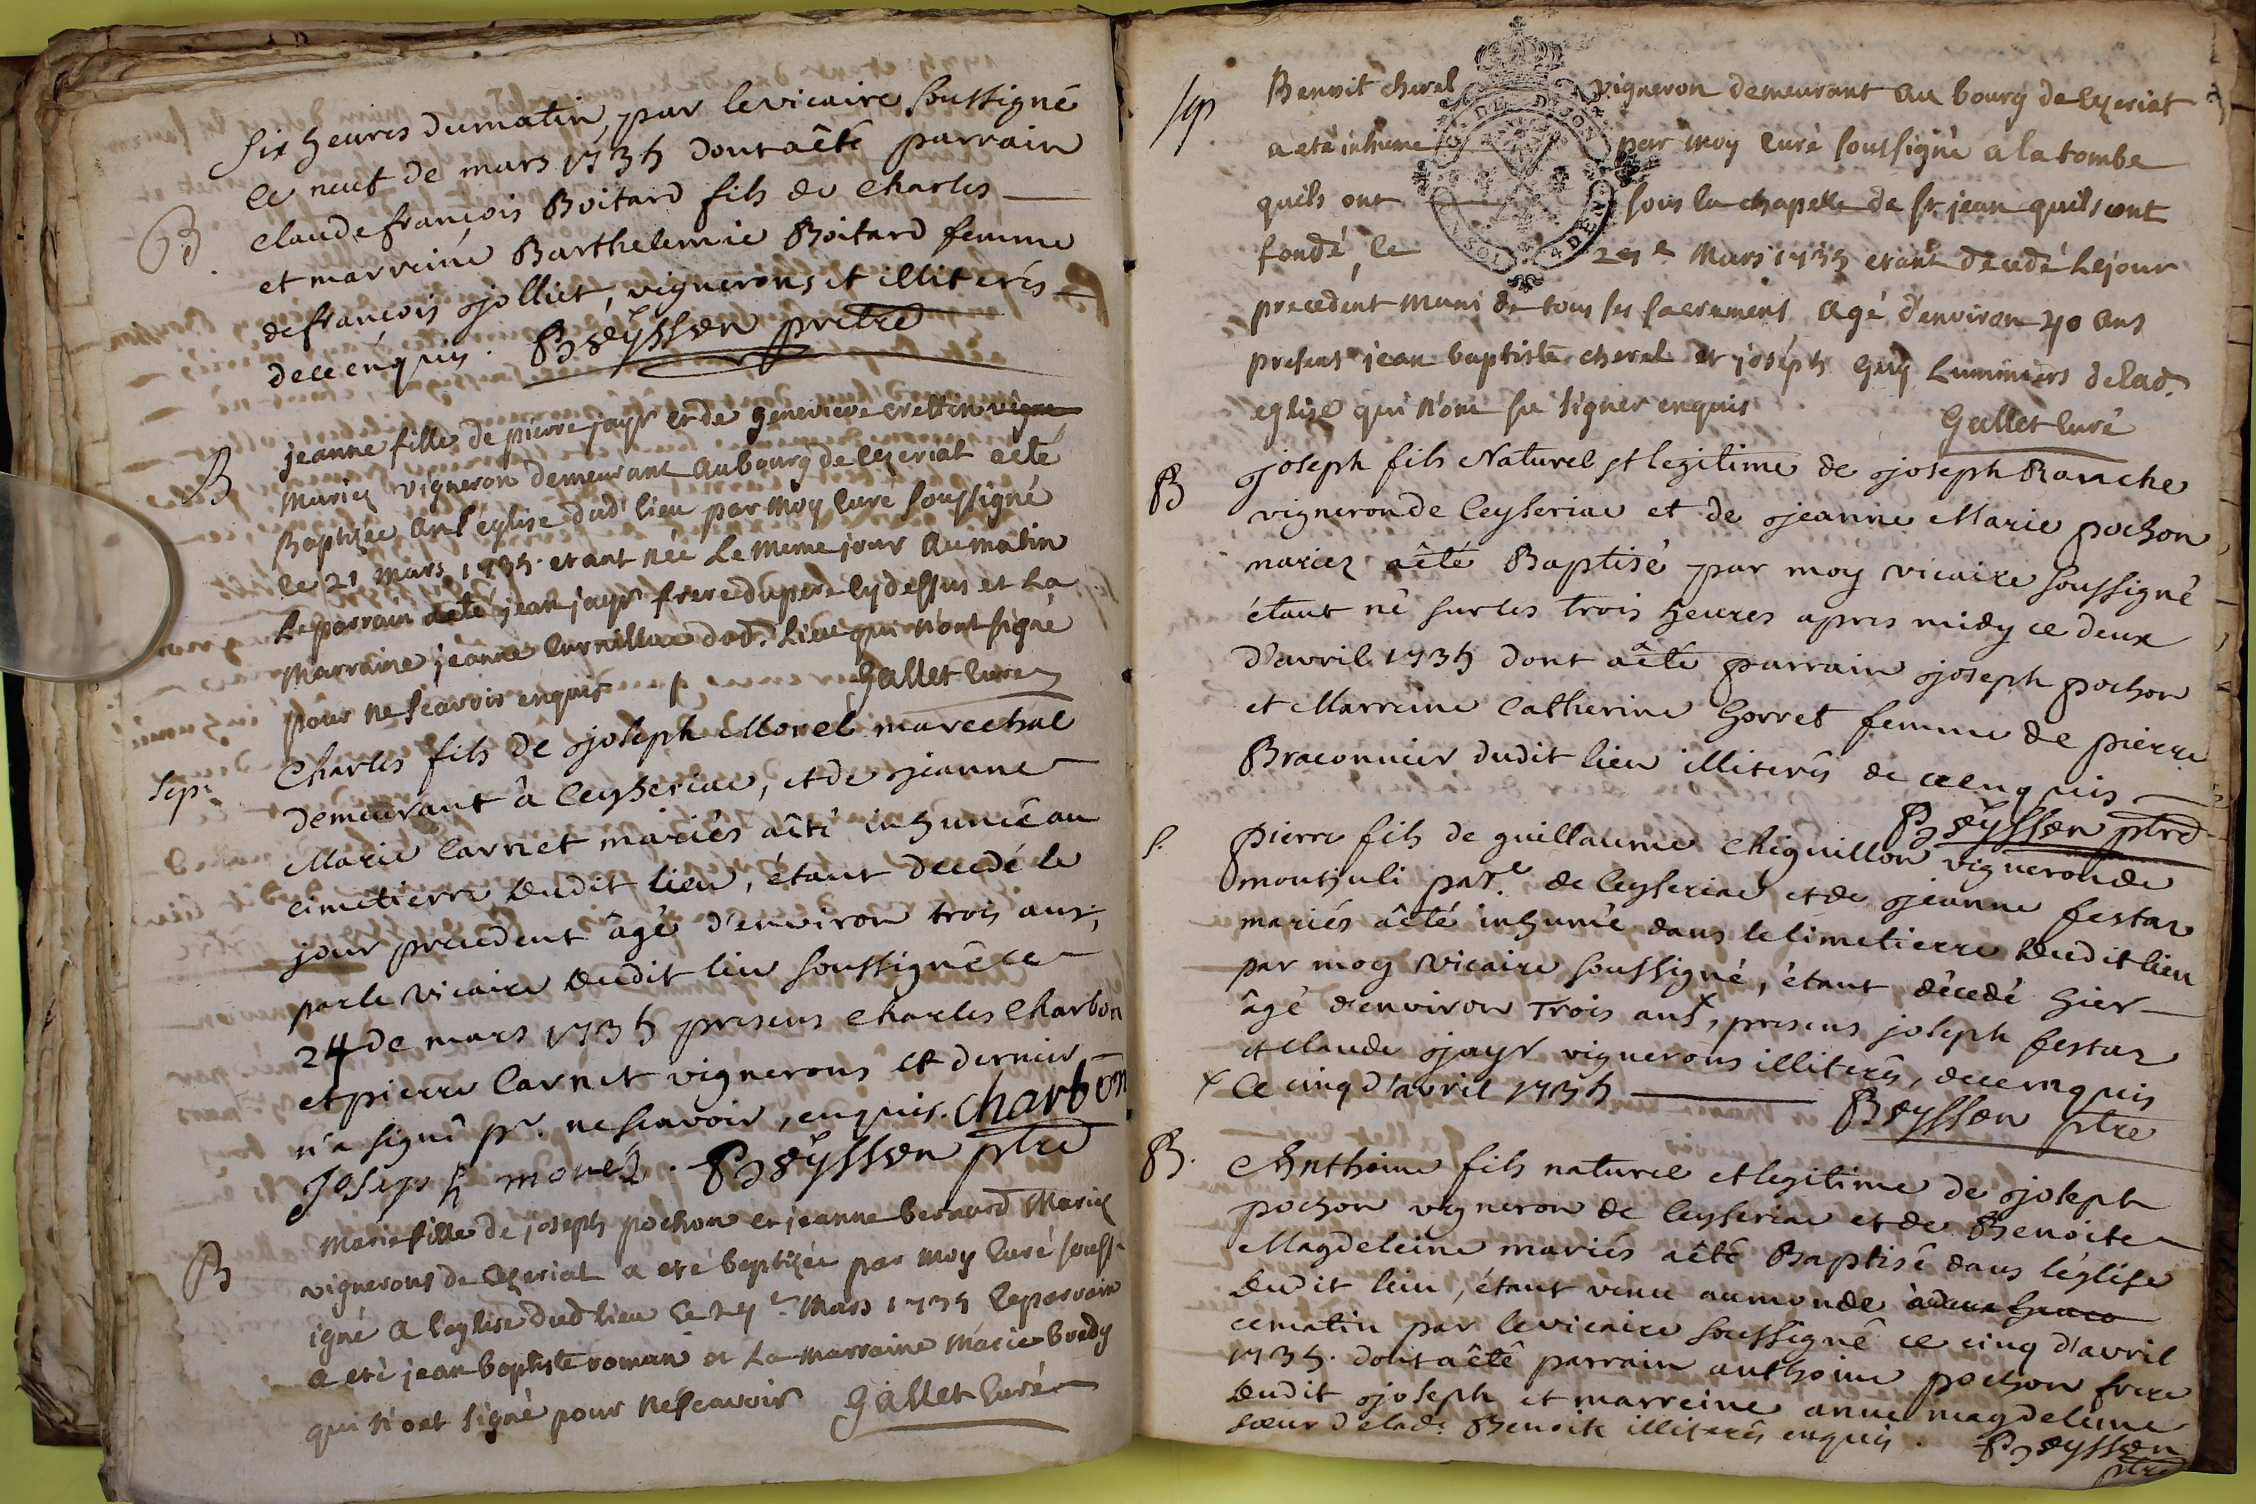 six heures du matin, par le vicaire soussigné
ce neuf de mars 1735 dont a êté parrain
B. Claude françois Boitard fils de Charles
et marreine Barthelemie Boitard femme
de françois Jolliet, vignerons et illiterés
de ce enquis. Beÿssson prêtre
jeanne fille de pierre jayr et de genevieve crettin vigne
B mariez vigneron demeurant au bourg de Cezeriat a eté
Baptizée en l'église dud' lieu par moy curé soussigné
le 21 mars 1735. etant née le meme jour au matin
Le parrain a eté jean jayr frere du pere cy dessus et la
marraine jeanne dud. lieu qui n'ont signé
pour ne scavoir enquis Gallet Curé
Charles fils de joseph Morel marechal
sep. demeurant à Ceyseriac, et de jeanne
Marie Carnet mariés a êté inhumé au
cimetierre dudit lieu, étant decedé le
jour precedent âgé d'environ trois ans,
par le vicaire dudit lieu soussigné ce
24 de mars 1735 presens Charles Charbon
et pierre Carnet vignerons et dernier
n'a signé pr. ne scavoir, enquis. Charbon
Joseph morel. Beÿssson ptre
Marie fille de joseph pochon et jeanne bernard Mariez
B vignerons de Cezeriat a eté baptizée par moy curé souss-
igné a l'eglise dud lieu le mars 1735 le parrain
a eté jean baptiste roman et la marraine marie
qui n'ont signé pour ne scavoir Gallet Curé
sep. Benoit cheval vigneron demeurant au bourg de Cezeriat
a eté inhumé par moy curé soussigné a la tombe
quils ont sous la chapelle de st jean quils ont
fondé, le mars 1735 etant decedé le jour
precedent muni de tous ses sacrements agé d'environ 40 ans
present jean baptiste cheval et joseph guy Luminiers de lad.
eglise qui n'ont su signer enquis
Gallet Curé
B Joseph fils Naturel et legitime de joseph Ranche
vigneron de Ceyseriac et de jeanne Marie pochon
mariez a êté Baptisé par moy vicaire soussigné
étant né sur les trois heures apres midy ce deux
d'avril 1735 dont a êté parrain joseph pochon
et Marreine Catherine Gorret femme de pierre
Braconnier dudit lieu illiterés de ce enquis
Beÿssson ptre
s. pierre fils de guillaume Chiguillon vigneron de
monthuli par.e de Ceyseriac et de jeanne festaz
mariés a êté inhumé dans le cimetierre dudit lieu
par moy vicaire soussigné, étant décedé hier
âgé d'environ trois ans x, presens joseph festaz
et claude jayr vignerons illiterés, de ce enquis
x ce cinq d'avril 1735
Beÿssson ptre
B. Anthoine fils naturel et legitime de joseph
pochon vigneron de Ceyseriac et de Benoite
Magdeleine mariés a êté Baptisé dans l'église
dudit lieu, étant venu au monde
ce matin par le vicaire soussigné ce cinq d'avril
1735. dont a êté parrain anthoine pochon frere
dudit joseph et marreine anne magdeleine
soeur de lad. Benoite illiterés enquis. Beÿssson
ptre